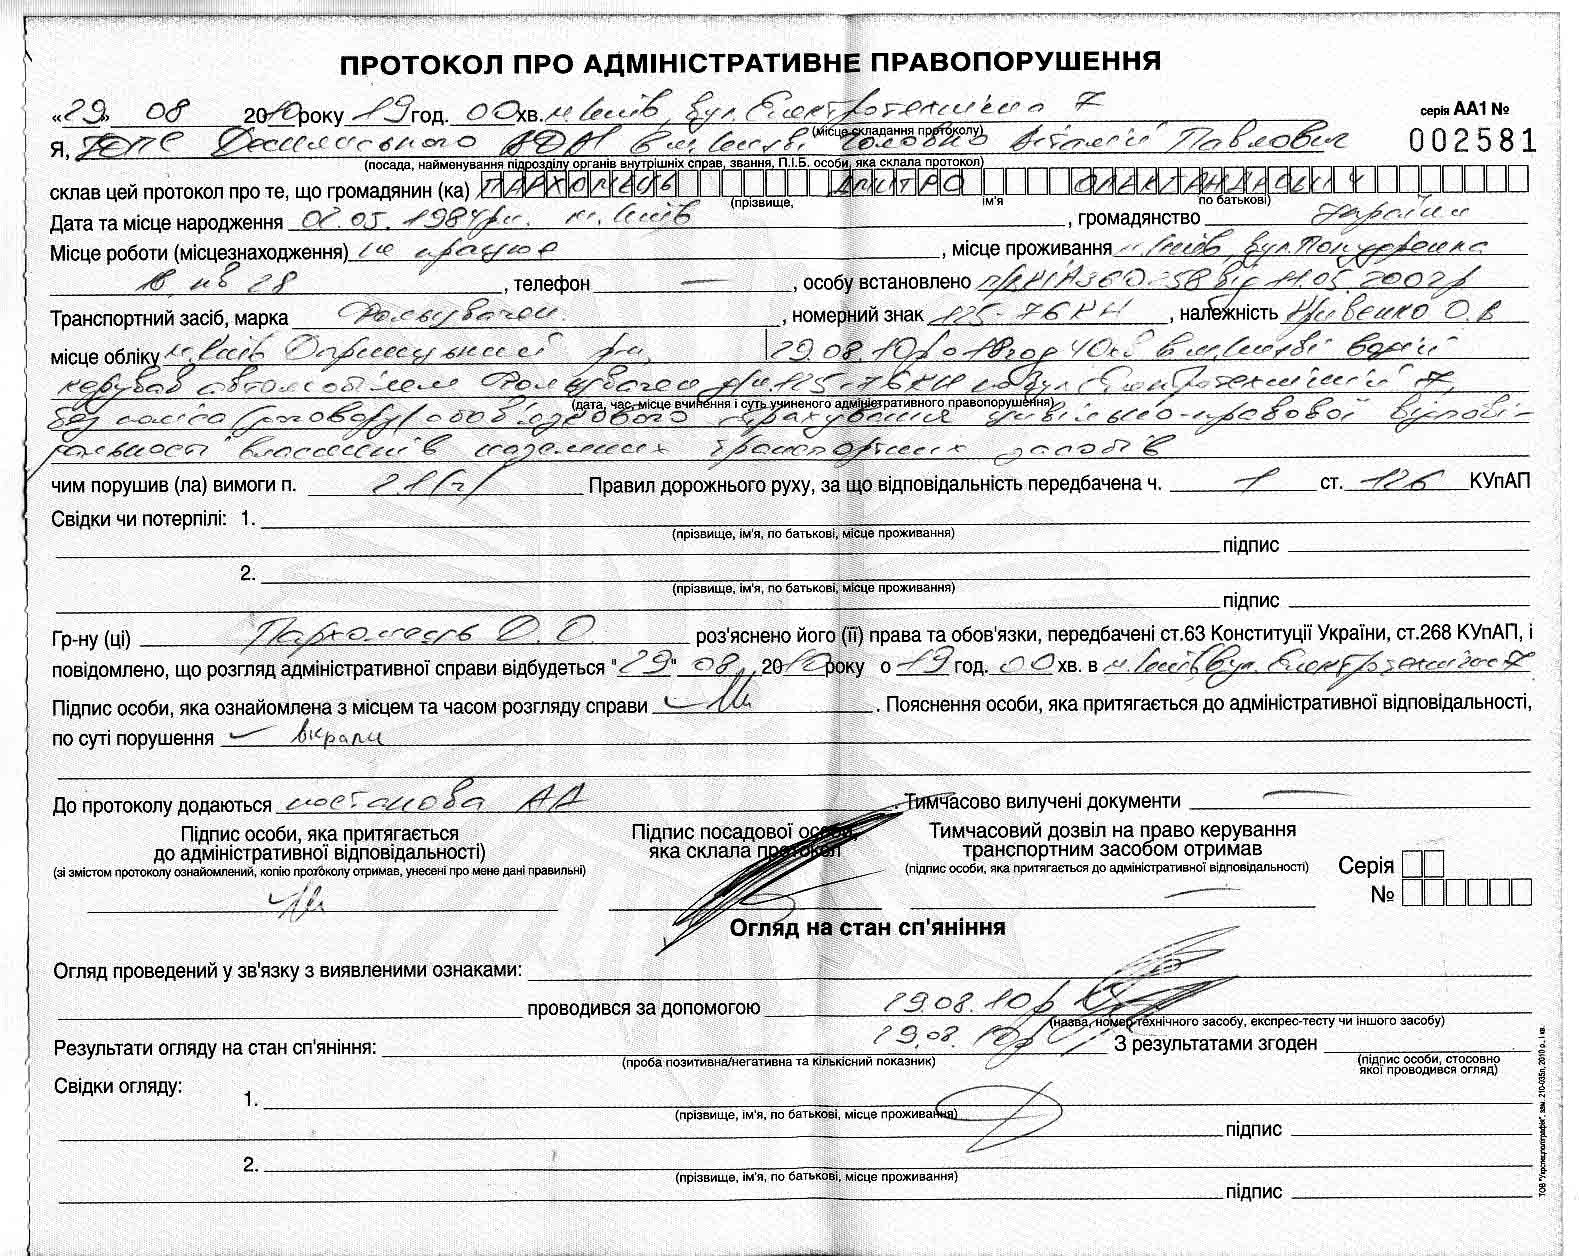 ПРОТОКОЛ ПРО АДМІНІСТРАТИВНЕ ПРАВОПОРУШЕННЯ
«29» 08 2010 року 19 год. 00 хв. м. Київ, вул. Електротехнічна 7
(місце складання протоколу)
серія АА1 №
002581
Я, Деснянського в м. Києві Віталій Павлович
(посада, найменування підрозділу органів внутрішніх справ, звання, П.І.Б. особи, яка склала протокол)
склав цей протокол про те, що громадянин (ка) ПАРХОМЕЦЬ ДМИТРО ОЛЕКСАНДРОВИЧ
(прізвище, ім'я по батькові)
Дата та місце народження 02.05.1984р. м. Київ, громадянство Україна
Місце роботи (місцезнаходження) не працює, місце проживання м. Київ, вул.
кв 28, телефон —, особу встановлено 11.05.2002р
Транспортний засіб, марка Фольцваген, номерний знак 125-76 КН, належність Кривенко О.В
місце обліку м. Київ Дарницький р-н, 29.08.10р о 18 год 40 хв в м. Києві водій
керував автомобілем Фольцваген д/н 125-76 КН по вул. Електротехнічній 7,
(дата, час, місце вчинення і суть учиненого адміністративного правопорушення)
без поліса (договору) обов'язкового страхування цивільно-правової відпові-
дальності власників наземних транспортних засобів
чим порушив (ла) вимоги п. 2.1(г) Правил дорожнього руху, за що відповідальність передбачена ч. 1 ст. 126 КУпАП
Свідки чи потерпілі: 1.
(прізвище, ім'я, по батькові, місце проживання)
підпис
2.
(прізвище, ім'я, по батькові, місце проживання)
підпис
Гр-ну (ці) Пархомець Д.О. роз'яснено його (її) права та обов'язки, передбачені ст.63 Конституції України, ст.268 КУпАП, і
повідомлено, що розгляд адміністративної справи відбудеться "29" 08 2010 року о 19 год. 00 хв. в м. Київ вул. Електротехнічна 7
Підпис особи, яка ознайомлена з місцем та часом розгляду справи . Пояснення особи, яка притягається до адміністративної відповідальності,
по суті порушення — вкрали
До протоколу додаються постанова АА Тимчасово вилучені документи —
Підпис особи, яка притягається
до адміністративної відповідальності)
(зі змістом протоколу ознайомлений, копію протоколу отримав, унесені про мене дані правильні)
Підпис посадової особи,
яка склала протокол
Тимчасовий дозвіл на право керування
транспортним засобом отримав
(підпис особи, яка притягається до адміністративної відповідальності)
Серія
№
Огляд на стан сп'яніння
Огляд проведений у зв'язку з виявленими ознаками:
проводився за допомогою 29.08.10р
(назва, номер технічного засобу, експрес-тесту чи іншого засобу)
Результати огляду на стан сп'яніння: 29.08.10р З результатами згоден
(проба позитивна/негативна та кількісний показник)
(підпис особи, стосовно
якої проводився огляд)
Свідки огляду:
1.
(прізвище, ім'я, по батькові, місце проживання)
підпис
2.
(прізвище, ім'я, по батькові, місце проживання)
підпис